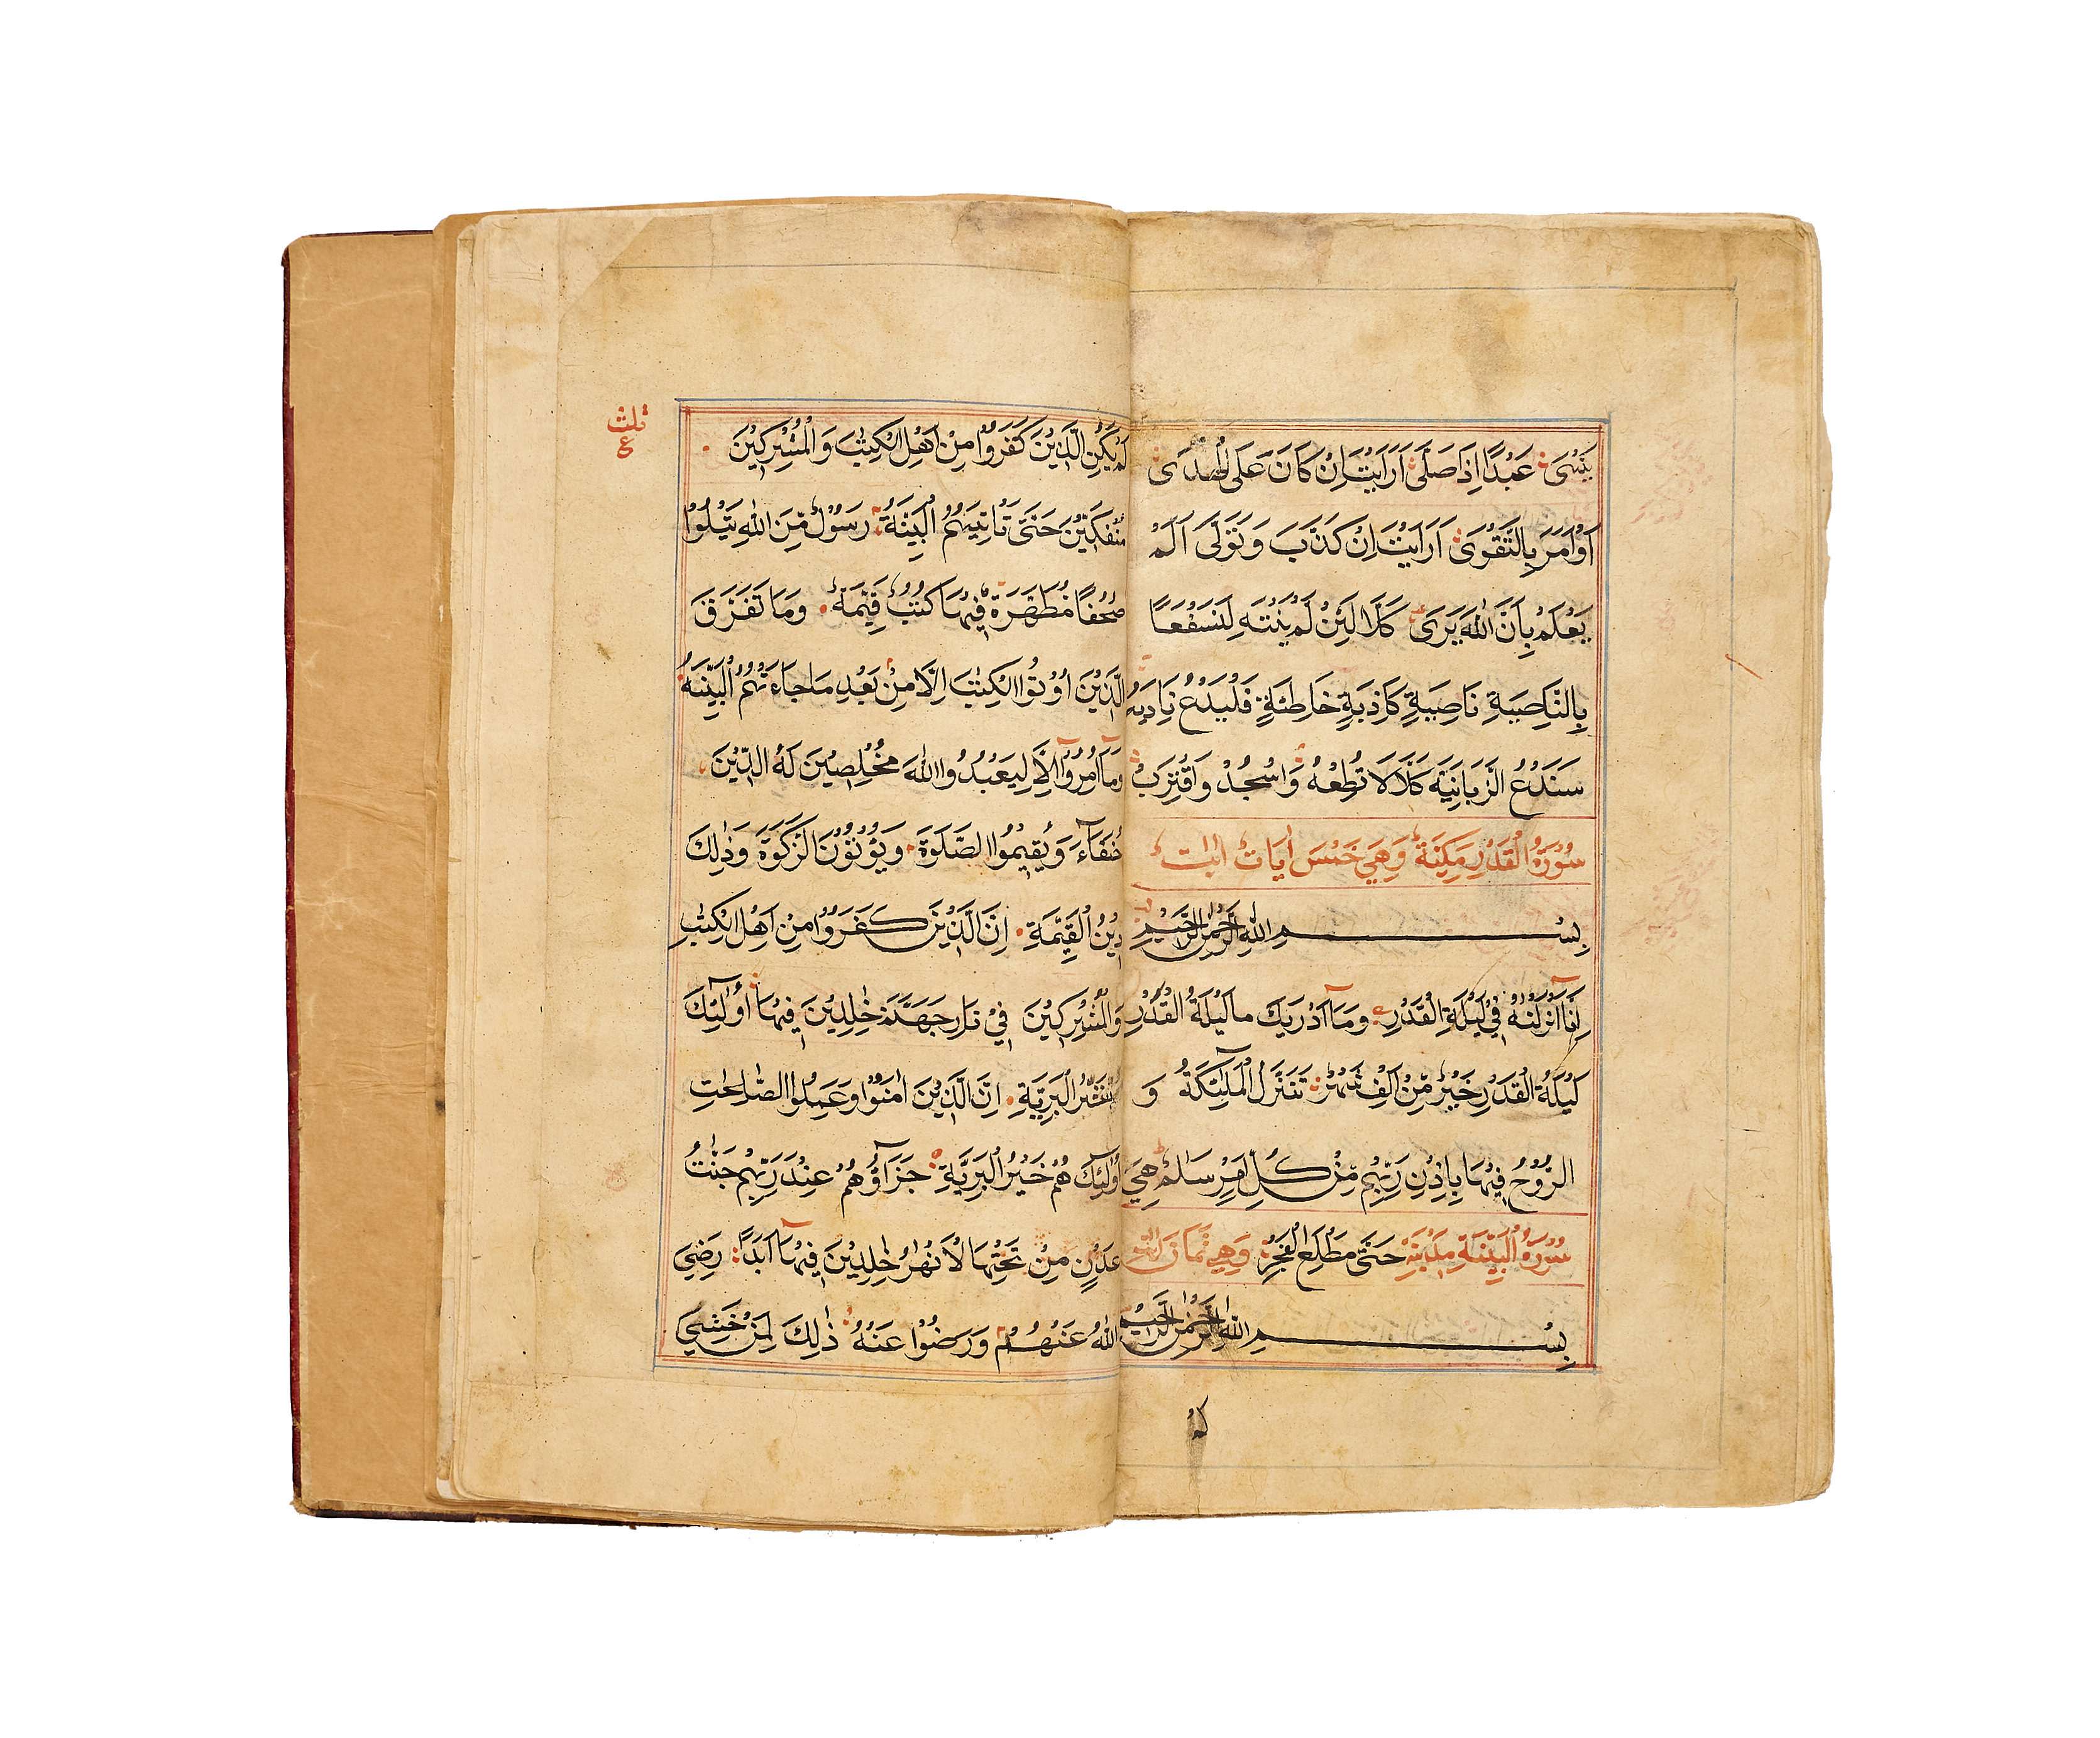 يَنْهَىٰ عَبْدًا اِذَا صَلّٰى اَرَاَيْتَ اِنْ كَانَ عَلَى الْهُدٰى
اَوْ اَمَرَ بِالتَّقْوٰى اَرَاَيْتَ اِنْ كَذَّبَ وَتَوَلّٰى اَلَمْ
يَعْلَمْ بِاَنَّ اللّٰهَ يَرٰى كَلَّا لَئِنْ لَمْ يَنْتَهِ لَنَسْفَعًا
بِالنَّاصِيَةِ نَاصِيَةٍ كَاذِبَةٍ خَاطِئَةٍ فَلْيَدْعُ نَادِيَهُ
سَنَدْعُ الزَّبَانِيَةَ كَلَّا لَا تُطِعْهُ وَاسْجُدْ وَاقْتَرِبْ
سُوْرَةُ الْقَدْرِ مَكِّيَّةٌ وَهِيَ خَمْسَ اٰيَاتٍ
بِسْمِ اللّٰهِ الرَّحْمٰنِ الرَّحِيْمِ
اِنَّا اَنْزَلْنٰهُ فِيْ لَيْلَةِ الْقَدْرِ وَمَا اَدْرٰيكَ مَا لَيْلَةُ الْقَدْرِ
لَيْلَةُ الْقَدْرِ خَيْرٌ مِّنْ اَلْفِ شَهْرٍ تَنَزَّلُ الْمَلٰٓئِكَةُ وَ
الرُّوْحُ فِيْهَا بِاِذْنِ رَبِّهِمْ مِّنْ كُلِّ اَمْرٍ سَلٰمٌ هِيَ
حَتّٰى مَطْلَعِ الْفَجْرِ سُوْرَةُ الْبَيِّنَةِ مَدَنِيَّةٌ وَهِيَ ثَمَانَ
بِسْمِ اللّٰهِ الرَّحْمٰنِ الرَّحِيْمِ
لم
ثلث
ع
لَمْ يَكُنِ الَّذِيْنَ كَفَرُوْا مِنْ اَهْلِ الْكِتٰبِ وَالْمُشْرِكِيْنَ
مُنْفَكِّيْنَ حَتّٰى تَاْتِيَهُمُ الْبَيِّنَةُ رَسُوْلٌ مِّنَ اللّٰهِ يَتْلُوْا
صُحُفًا مُّطَهَّرَةً فِيْهَا كُتُبٌ قَيِّمَةٌ وَمَا تَفَرَّقَ
الَّذِيْنَ اُوْتُوا الْكِتٰبَ اِلَّا مِنْ بَعْدِ مَا جَاءَتْهُمُ الْبَيِّنَةُ
وَمَا اُمِرُوْا اِلَّا لِيَعْبُدُوا اللّٰهَ مُخْلِصِيْنَ لَهُ الدِّيْنَ
حُنَفَآءَ وَيُقِيْمُوا الصَّلٰوةَ وَيُؤْتُوْنَ الزَّكٰوةَ وَذٰلِكَ
دِيْنُ الْقَيِّمَةِ اِنَّ الَّذِيْنَ كَفَرُوْا مِنْ اَهْلِ الْكِتٰبِ
وَالْمُشْرِكِيْنَ فِيْ نَارِ جَهَنَّمَ خٰلِدِيْنَ فِيْهَا اُولٰٓئِكَ
هُمْ شَرُّ الْبَرِيَّةِ اِنَّ الَّذِيْنَ اٰمَنُوْا وَعَمِلُوا الصّٰلِحٰتِ
اُولٰٓئِكَ هُمْ خَيْرُ الْبَرِيَّةِ جَزَآؤُهُمْ عِنْدَ رَبِّهِمْ جَنّٰتُ
عَدْنٍ مِنْ تَحْتِهَا الْاَنْهٰرُ خٰلِدِيْنَ فِيْهَا اَبَدًا رَضِيَ
اللّٰهُ عَنْهُمْ وَرَضُوْا عَنْهُ ذٰلِكَ لِمَنْ خَشِيَ